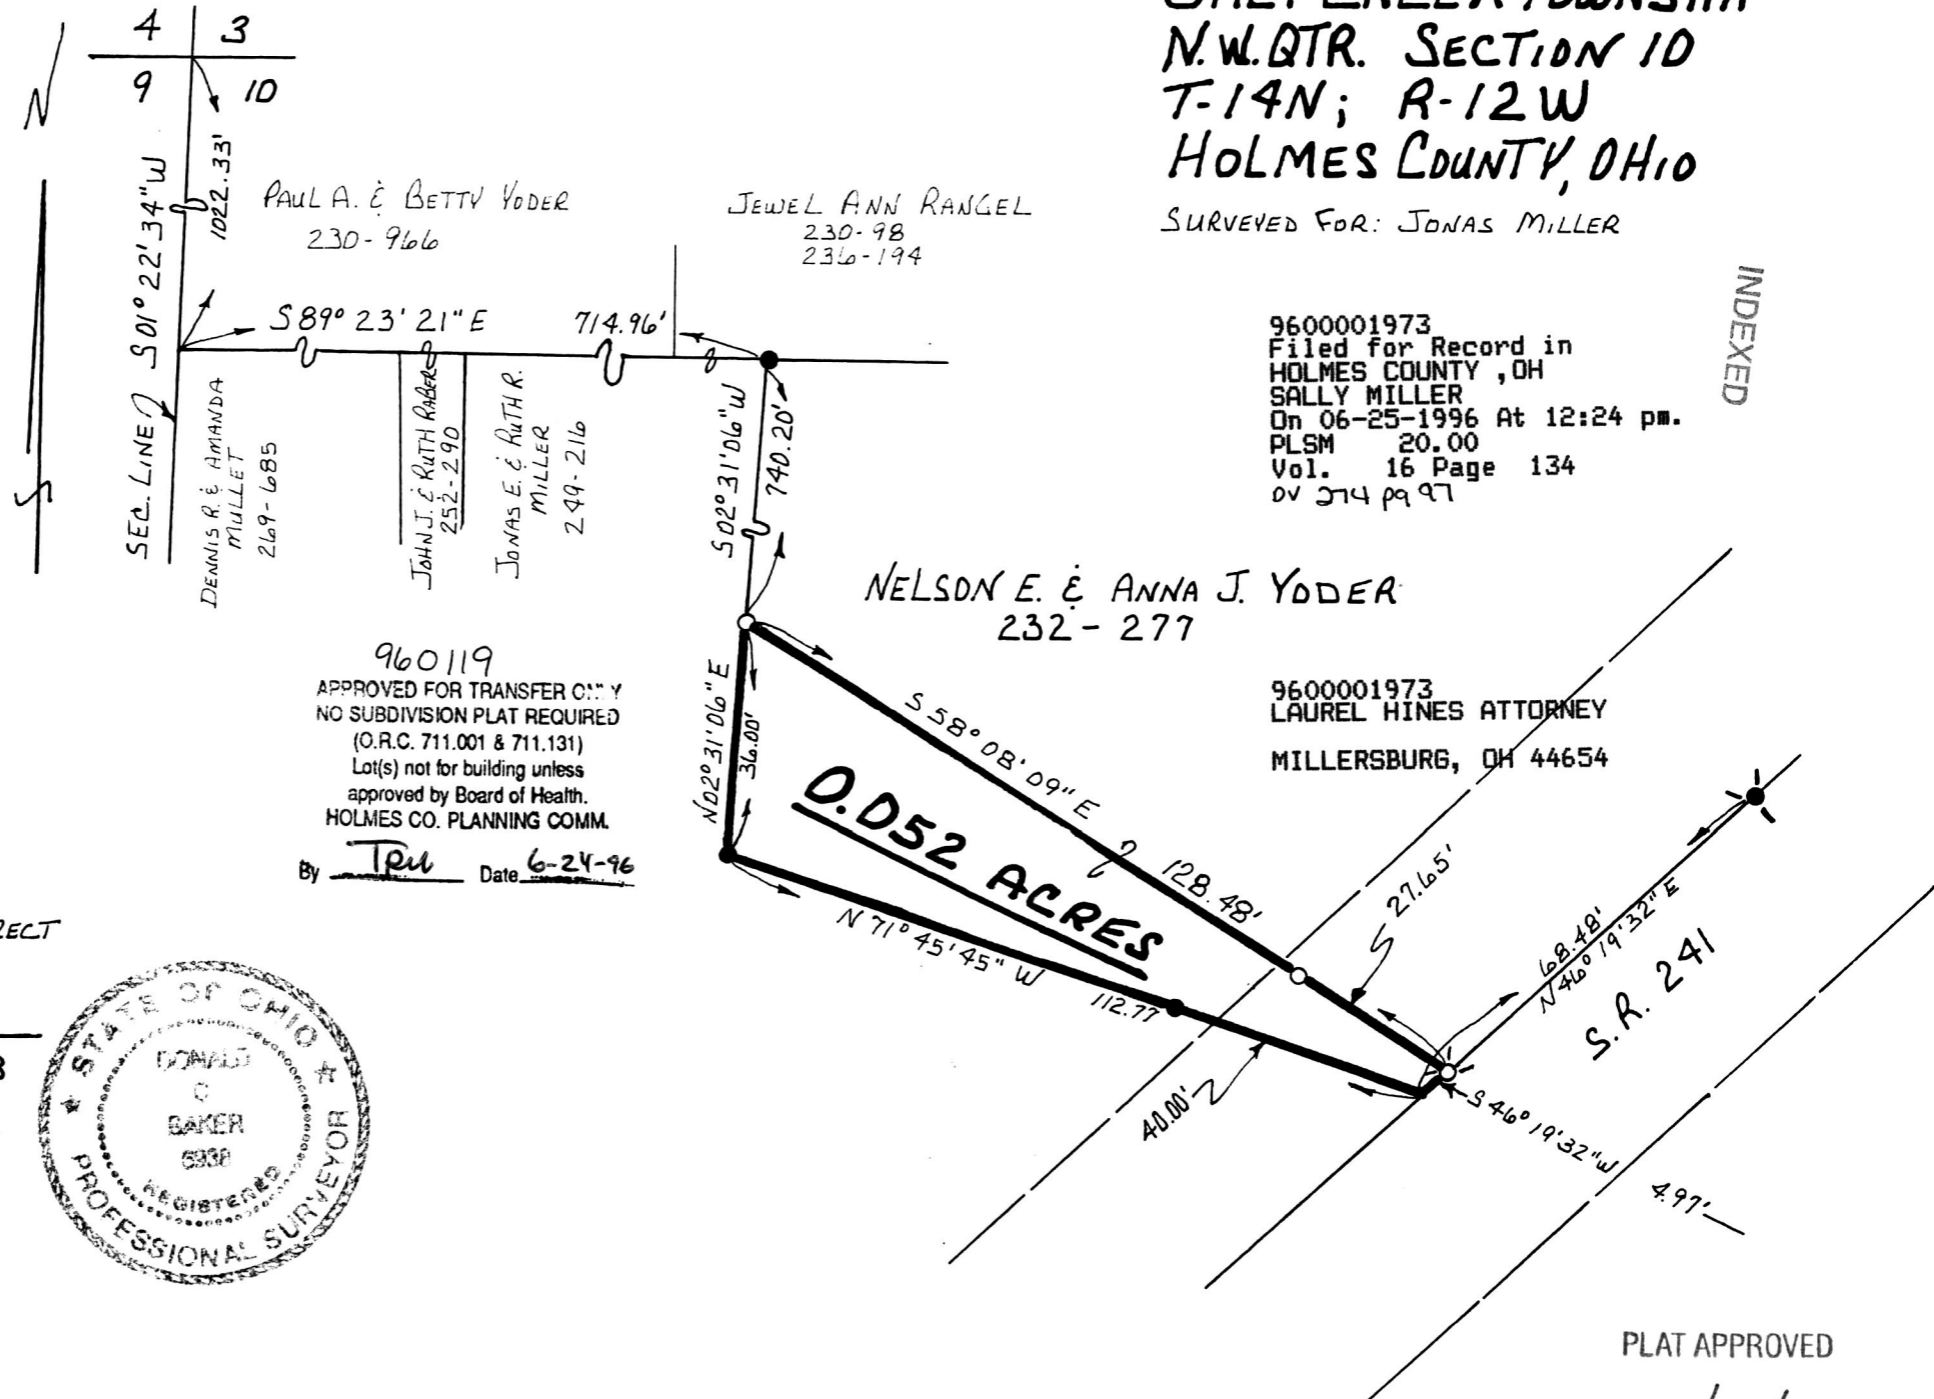 N.W. QTR. SECTION 10
T-14N; R-12W
HOLMES COUNTY, OHIO
SURVEYED FOR: JONAS MILLER
4 3
9 10
N
S
1022.33'
SEC. LINE S01° 22' 34" W
PAUL A. & BETTY YODER
230-966
JEWEL ANN RANGEL
230-98
236-194
S 89° 23' 21" E 714.96'
DENNIS R. & AMANDA
MULLET
269-685
JOHN J. & RUTH RABER
252-290
JONAS E. & RUTH R.
MILLER
249-216
S 02° 31' 06" W 740.20'
INDEXED
9600001973
Filed for Record in
HOLMES COUNTY ,OH
SALLY MILLER
On 06-25-1996 At 12:24 pm.
PLSM 20.00
Vol. 16 Page 134
OV 274 pg 97
NELSON E. & ANNA J. YODER
232-277
9600001973
LAUREL HINES ATTORNEY
MILLERSBURG, OH 44654
960119
APPROVED FOR TRANSFER ONLY
NO SUBDIVISION PLAT REQUIRED
(O.R.C. 711.001 & 711.131)
Lot(s) not for building unless
approved by Board of Health.
HOLMES CO. PLANNING COMM.
By Date 6-24-96
N 02° 31' 06" E
36.00'
S 58° 08' 09" E 128.48'
0.052 ACRES
N 71° 45' 45" W 112.77
27.65'
40.00'
68.48'
N 46° 19' 32" E
S.R. 241
S 46° 19' 32" W
4.97'
STATE OF OHIO
DONALD
C
BAKER
6938
REGISTERED
PROFESSIONAL SURVEYOR
PLAT APPROVED